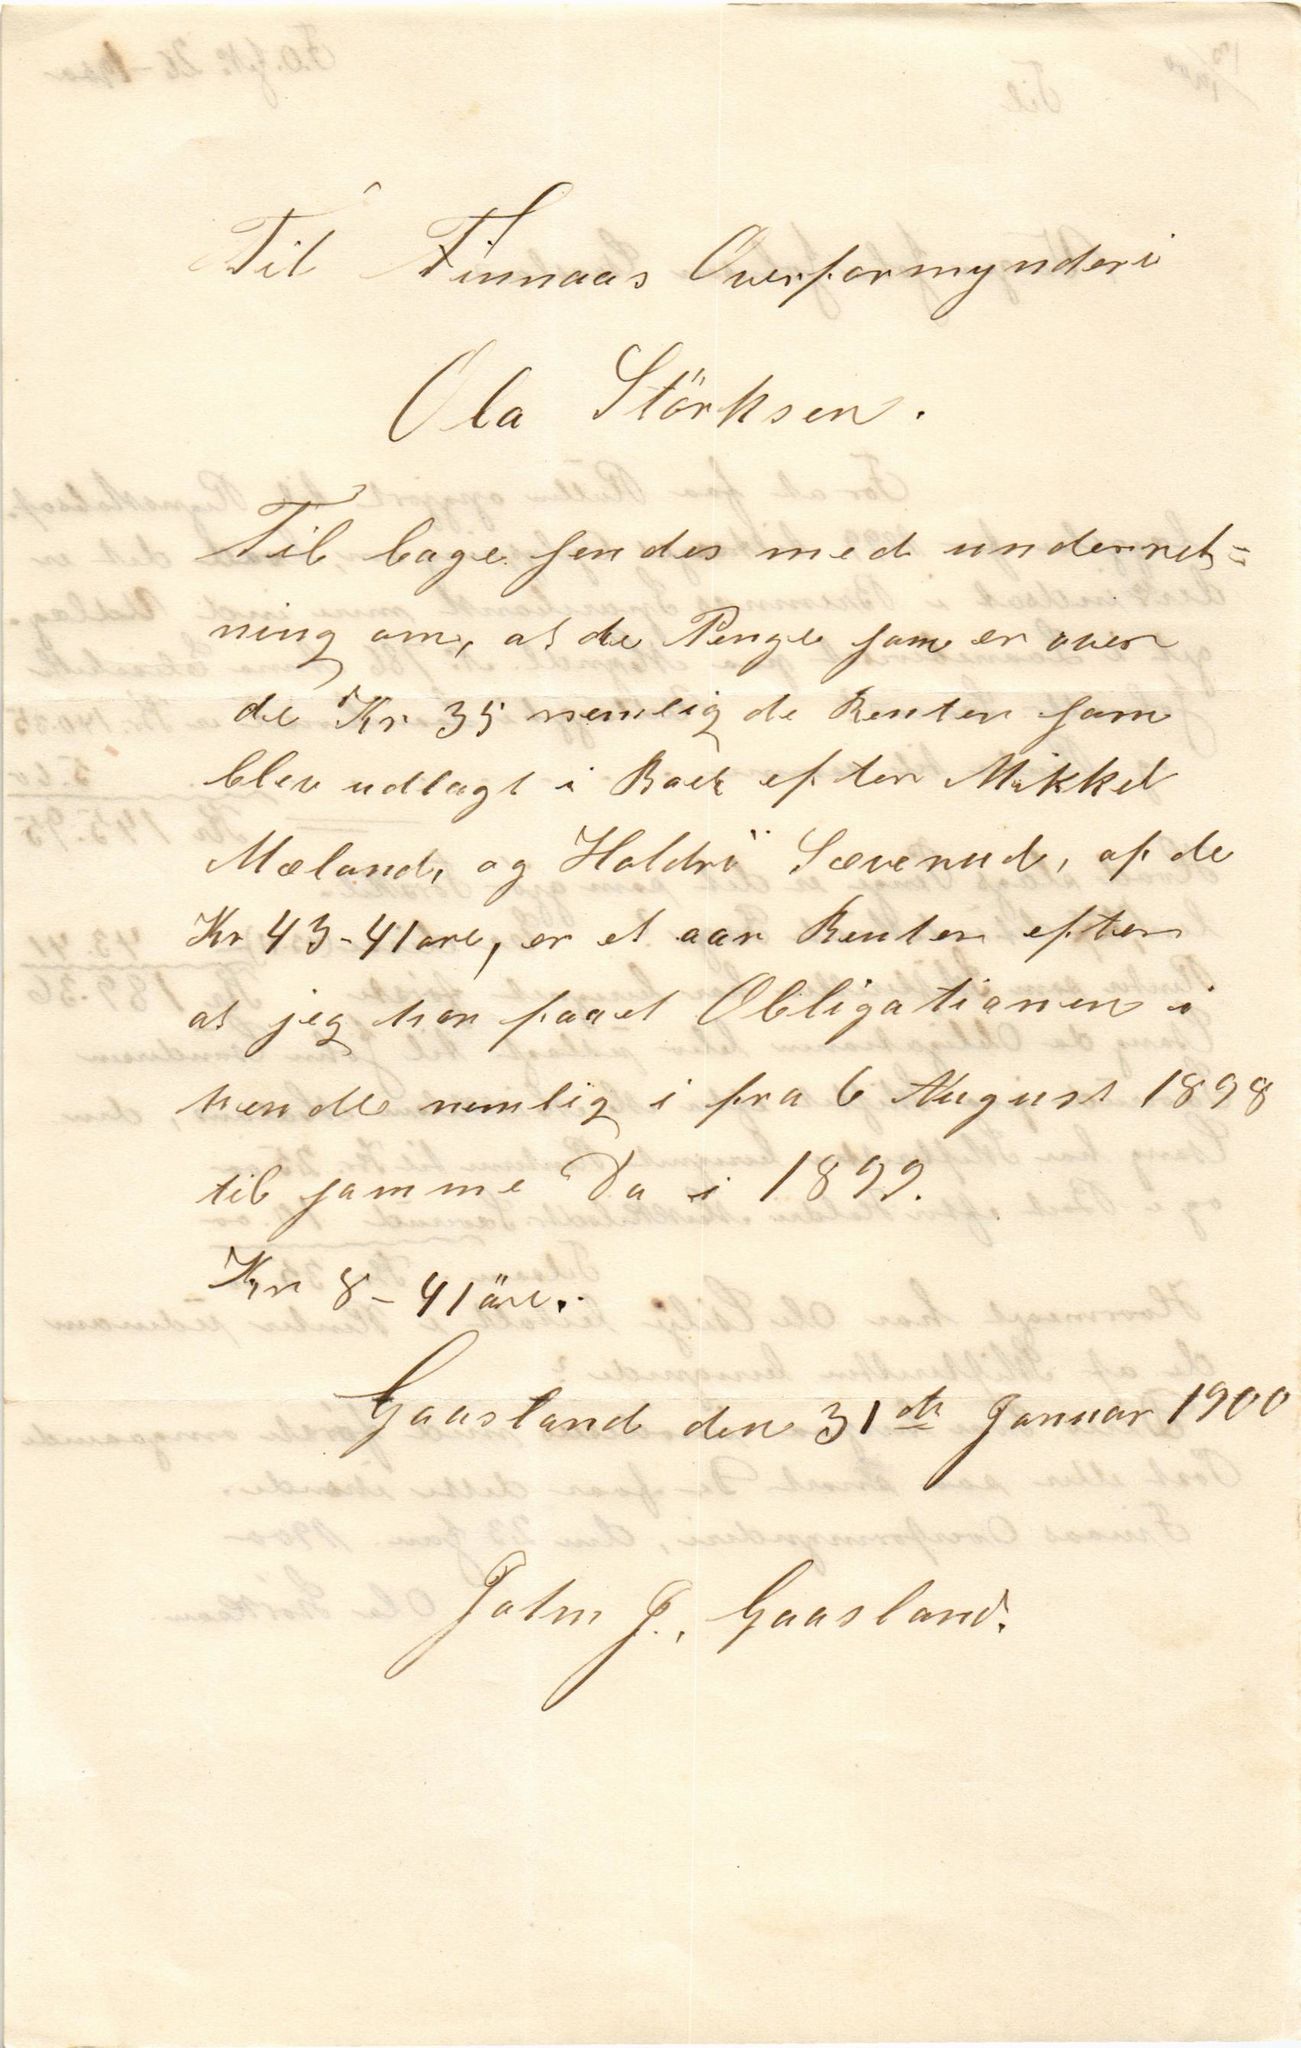 Til Finnaas Overformynderi
Ola Störksen.
Til bage sendes med underret=
ning om, at de Penge som er over
de Kr 35 nemlig de Renter som
blev udlagt i Boet efter Mikkel
Mæland, og Haldri Sæverud, af de
Kr 43-41 øre, er et aar Renter efter
at jeg har faaet Obligationen i
hende nemlig i fra 6 August 1898
til samme Da i 1899.
Kr 8-41 öre.
Gaasland den 31te Januar 1900
John J. Gaasland.